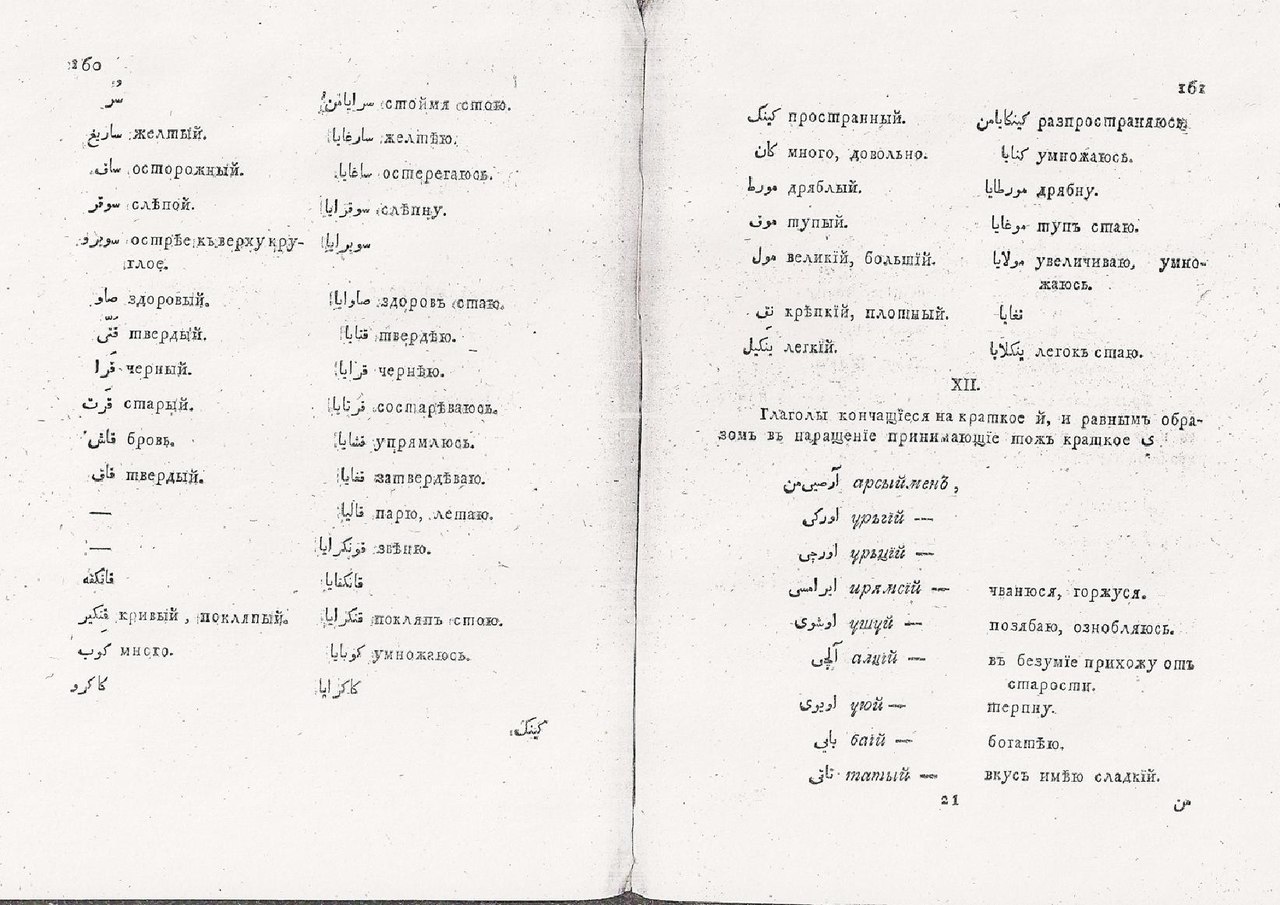 160
سر سرايامن стоймя стою.
ساريغ желтый. سارغايا желтѣю.
ساق осторожный. ساغايا остерегаюсь.
سوقر слѣпой. سوقرايا слѣпну.
سوپرو острѣе къ верху кру- سوپرايا
глое.
صاو здоровый. صاوايا здоровъ стаю.
قتى твердый. قتايا твердѣю.
قرا черный. قرايا чернѣю.
قرت старый. قرتايا состарѣваюсь.
قاش бровь. قشايا упрямлюсь.
قاق твердый. قغايا затвердѣваю.
— قاليا парю, летаю.
— قونكرايا звѣню.
قانكقه قانكقايا
قنكير кривый, покляпый. قنكرايا покляпъ стою.
كوب много. كوبايا умножаюсь.
كاكرو كاكرايا
كينك
161
كينك пространный. كينكايامن разпространяюсь.
كان много, довольно. كنايا умножаюсь.
مورط дряблый. مورطايا дрябну.
موق тупый. موغايا тупъ стаю.
مول великій, большій. مولايا увеличиваю, умно-
жаюсь.
نق крѣпкій, плотный. نغايا
ينكيل легкій. ينكلايا легокъ стаю.
XII.
Глаголы кончащіеся на краткое й, и равнымъ обра-
зомъ въ наращеніе принимающіе тожъ краткое ي
آرصيىمن арсыйменъ,
اوركى урьгій —
اورچى урьцій —
ايرامسى ирямсій — чванюся, горжуся.
اوشوى ушуй — позябаю, ознобляюсь.
آلچى алцій — въ безуміе прихожу отъ
старости.
اويوى уюй — терпну.
بايى баій — богатѣю.
تاتى татый — вкусъ имѣю сладкій.
21 من